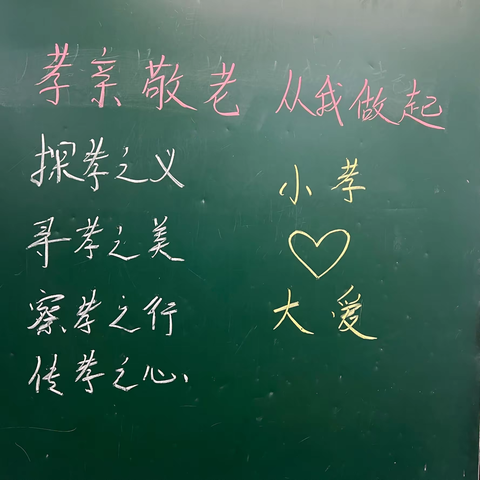 孝亲敬老 从我做起
探孝之义
寻孝之美
察孝之行
传孝之心
小孝
大爱